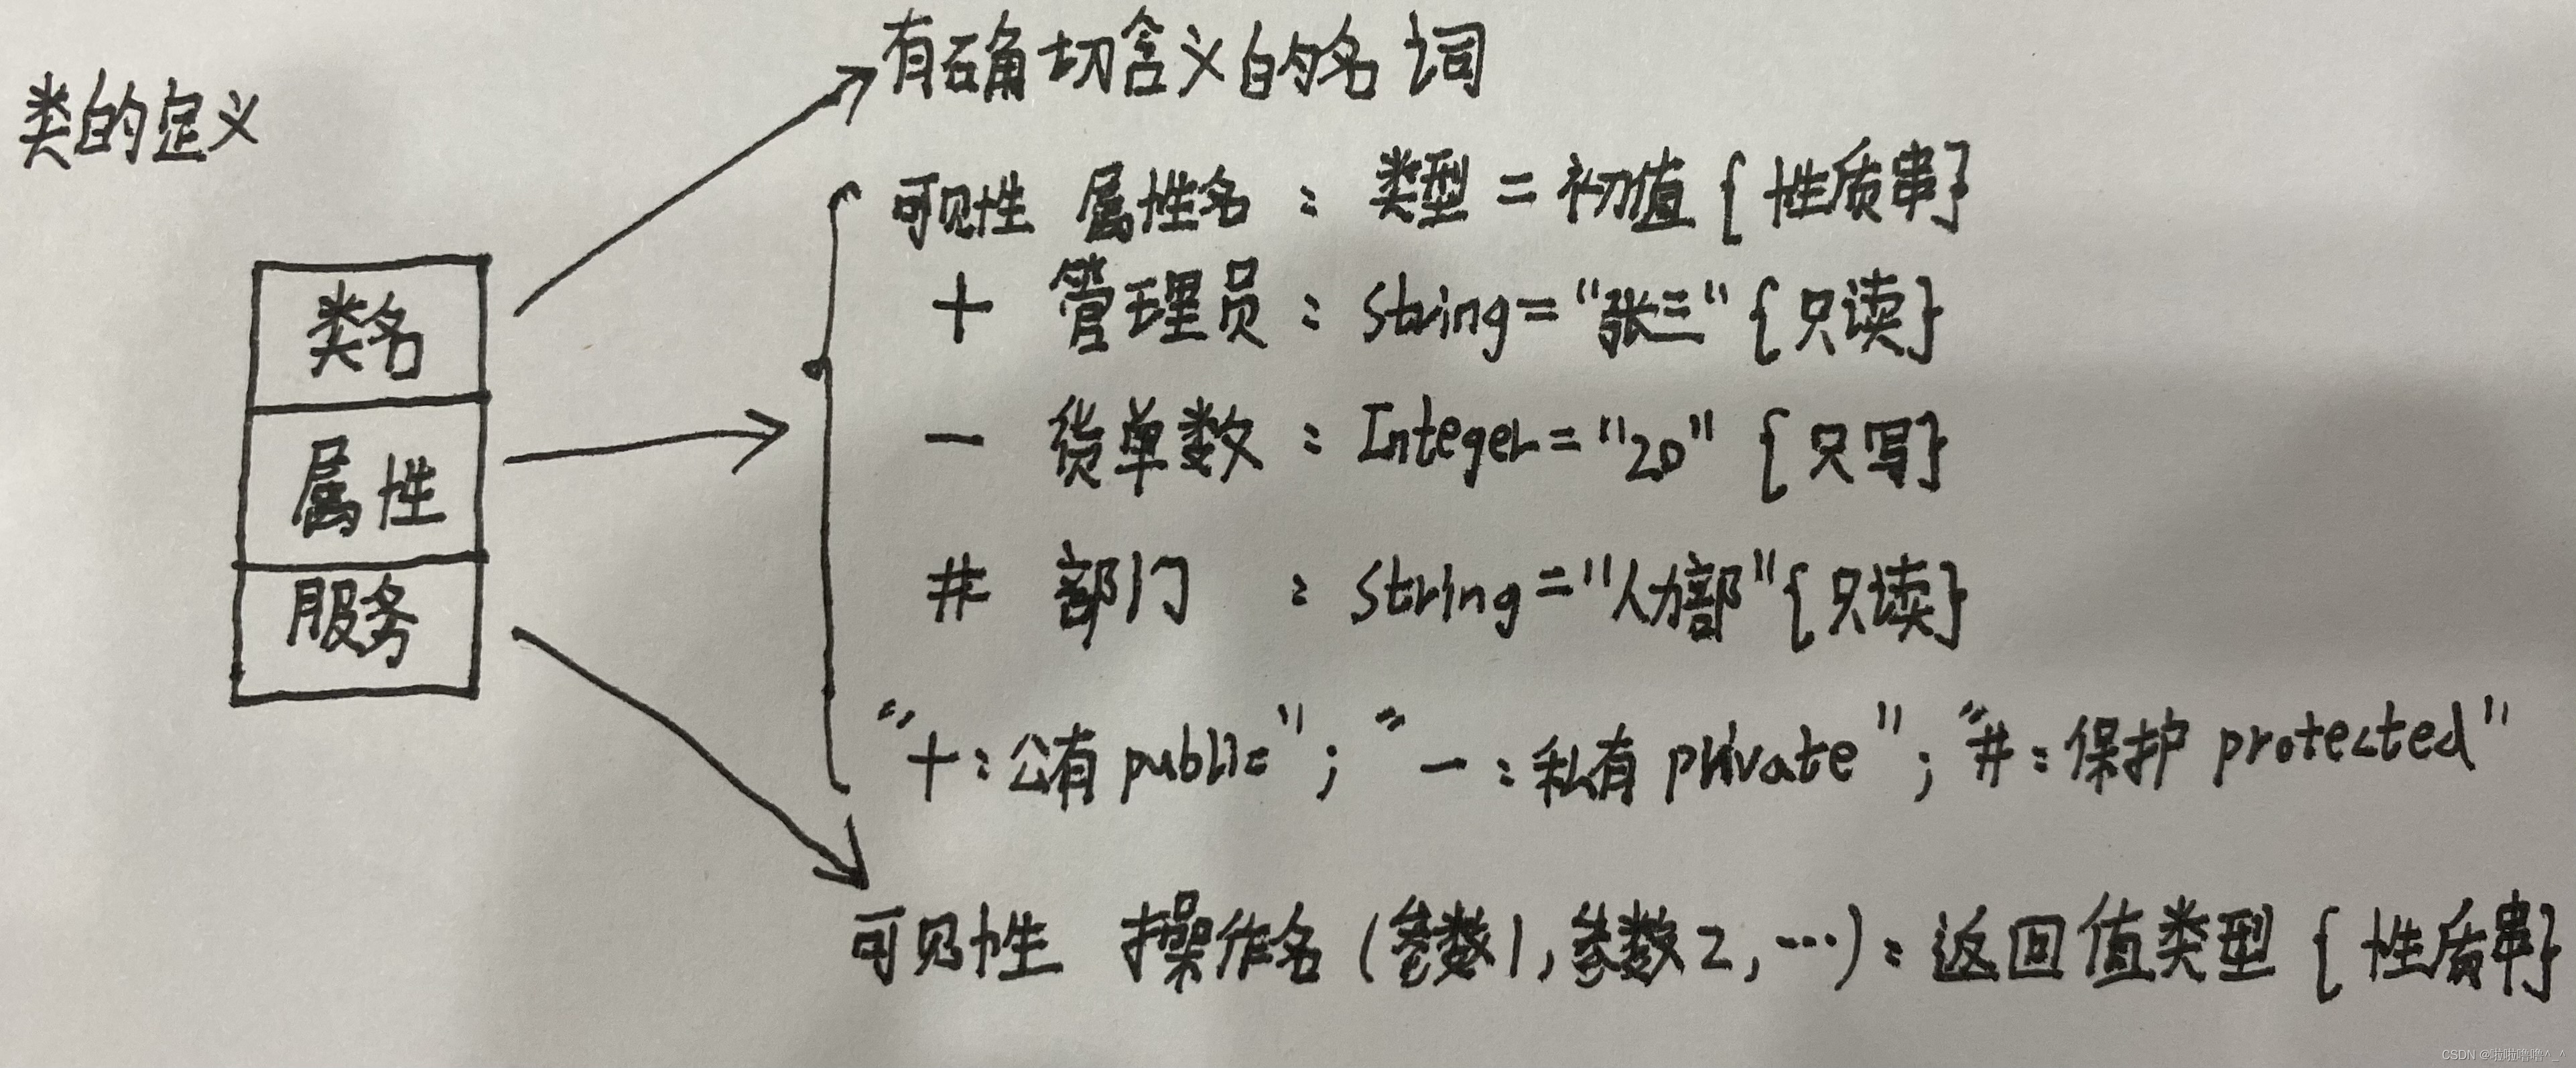 有确切含义的名词
类的定义
可见性 属性名 : 类型 = 初值 { 性质串}
类名
+ 管理员 : String = "张三" {只读}
属性
- 货单数 : Integer = "20" {只写}
服务
# 部门 : String = "人力部" {只读}
"+:公有 public" ; "-:私有 private" ; "#:保护 protected"
可见性 操作名 (参数1,参数2,…) : 返回值类型 { 性质串}
CSDN @啦啦噜噜^_^